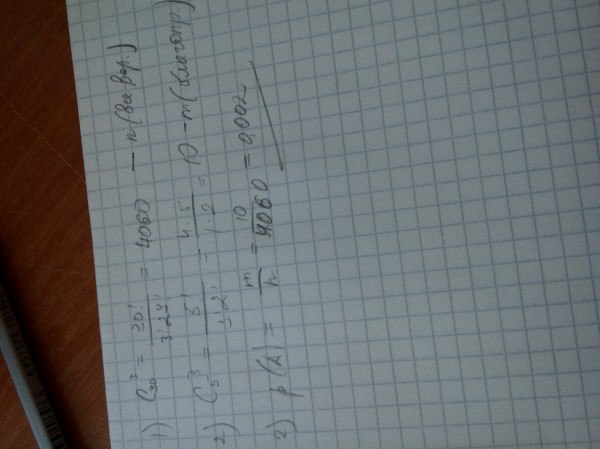 1) C₃₀³ = 30! / 3!·27! = 4060 — n (все вар.)
2) C₅³ = 5! / 3!·2! = 4·5 / 1·2 = 10 – m (благопр)
3) p(A) = m / n = 10 / 4060 = 0,002